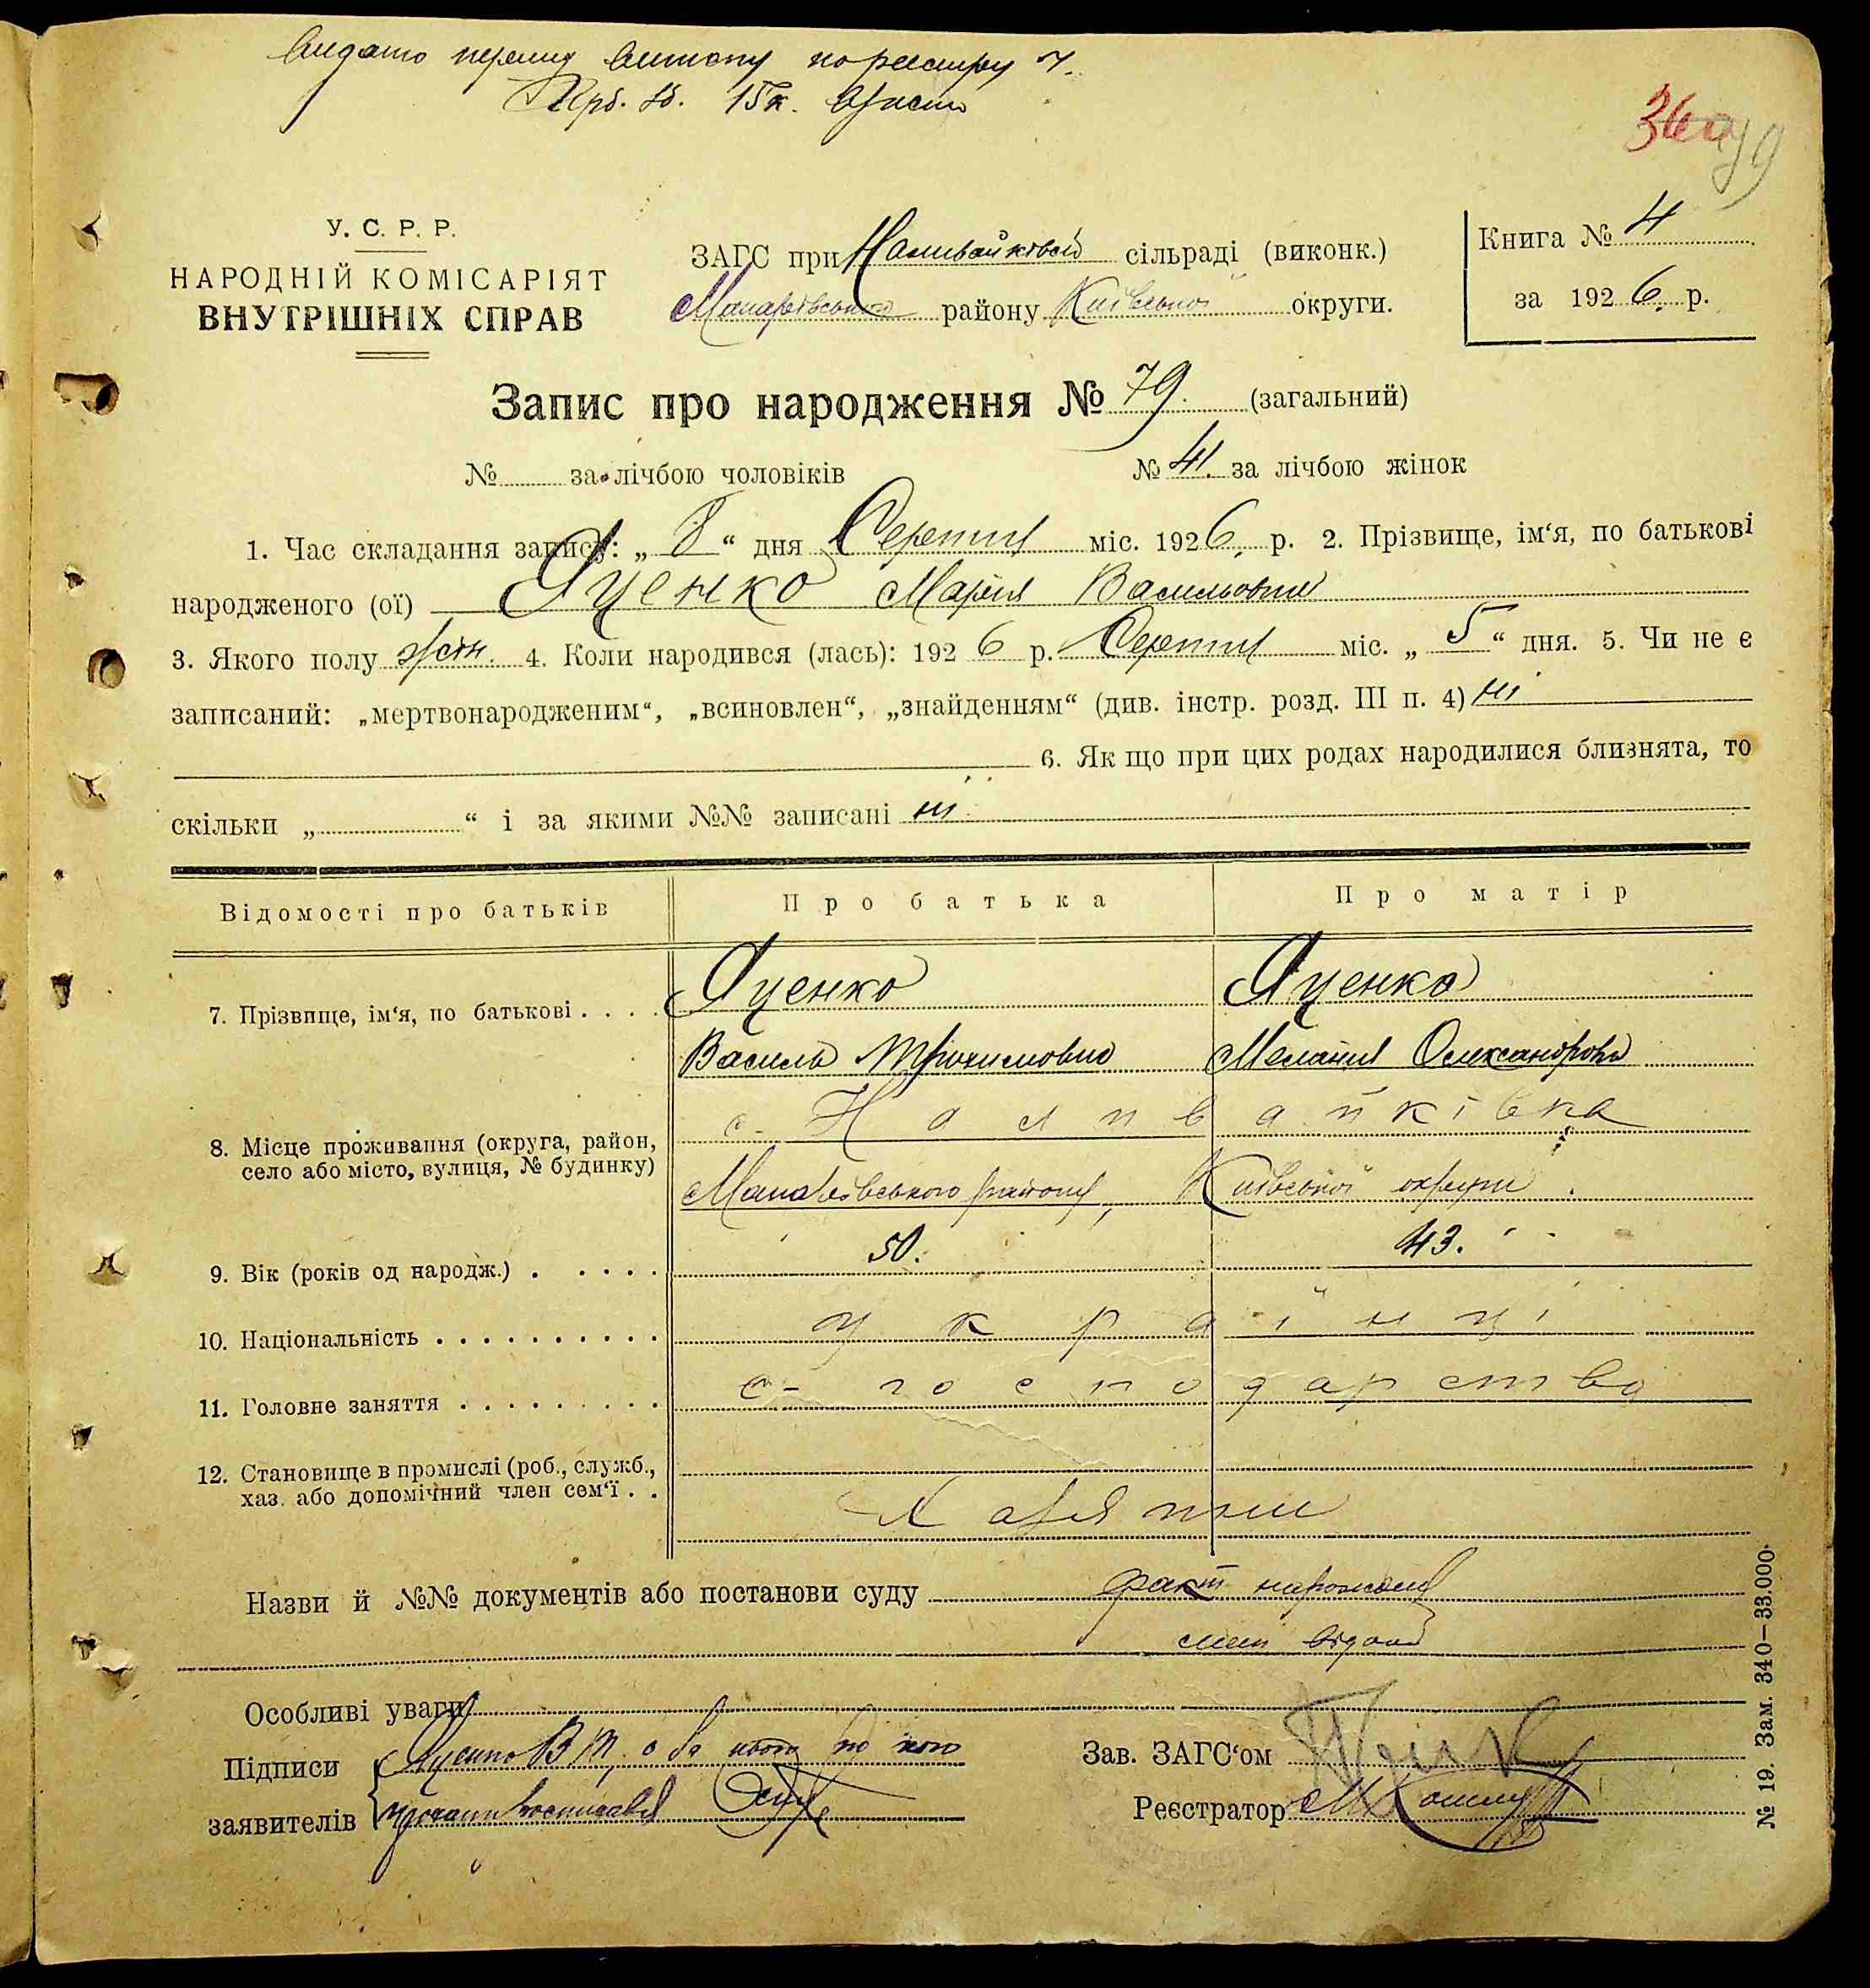 Видато першу виписку по реєстру 7.
15 к.
36 79
У. С. Р. Р.
НАРОДНІЙ КОМІСАРІЯТ
ВНУТРІШНІХ СПРАВ
ЗАГС при Наливайківській сільраді (виконк.)
Макарівського району Київської округи.
Книга № 4
за 1926 р.
Запис про народження № 79. (загальний)
№ за лічбою чоловіків
№ 41. за лічбою жінок
1. Час складання запису: „ 8 “ дня Серпня міс. 1926 р. 2. Прізвище, ім‘я, по батькові
народженого (ої) Яценко Марія Василівна
3. Якого полу жін. 4. Коли народився (лась): 1926 р. Серпня міс. „ 5 “ дня. 5. Чи не є
записаний: „мертвонародженим“, „всиновлен“, „знайденням“ (див. інстр. розд. III п. 4) ні
6. Як що при цих родах народилися близнята, то
скільки „ “ і за якими №№ записані ні
Відомості про батьків Про батька Про матір
7. Прізвище, ім‘я, по батькові . . . . Яценко Яценко
Василь Трохимович Меланія Олександрова
8. Місце проживання (округа, район,
село або місто, вулиця, № будинку)
с. Наливайківка
Макарівського району, Київської округи.
9. Вік (років од народж.) . . . . . 50. 43.
10. Національність . . . . . . . . . . українці
11. Головне заняття . . . . . . . . . с-господарство
12. Становище в промислі (роб., служб.,
хаз. або допомічний член сем‘ї . .
Назви й №№ документів або постанови суду факт народження
Особливі уваги
Підписи Яценко В Т, а за нього по його
заявителів проханню росписався
Зав. ЗАГС‘ом
Реєстратор
№ 19. Зам. 340—33.000.